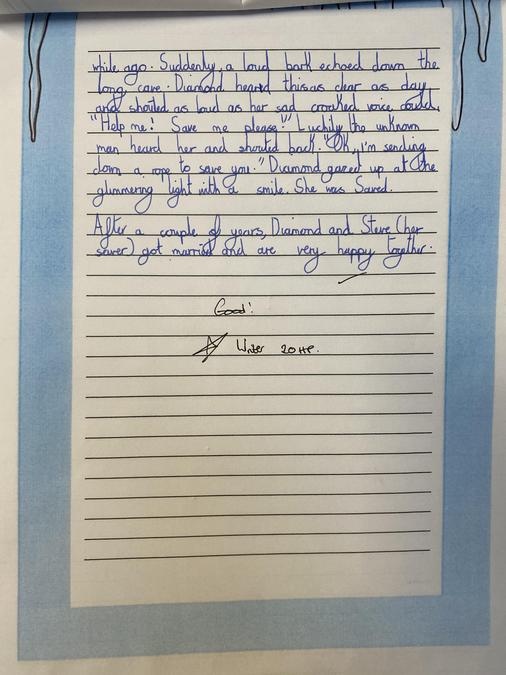 while ago. Suddenly, a loud bark echoed down the
long cave. Diamond heared this as clear as day
and shouted as loud as her sad croaked voice could,
"Help me! Save me please!" Luckily the unknown
man heard her and shouted back. "Ok, I'm sending
down a rope to save you." Diamond gazed up at the
glimmering light with a smile. She was Saved.
After a couple of years, Diamond and Steve (her
saver) got married and are very happy together.
Good!
20HP.